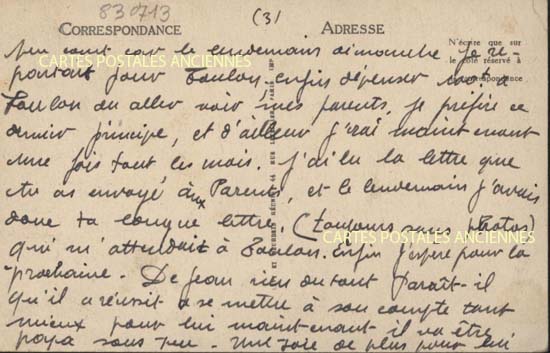 830713
(3)
CORRESPONDANCE
ADRESSE
N'écrire que sur
le côté réservé à
la correspondance
peu court car le lendemain dimanche je re-
partait pour Toulon. enfin dépenser à
Toulon ou aller voir mes parents, je préfère ce
dernier principe, et d'ailleur j'irai maintenant
une fois tout les mois. J'ai lu la lettre que
tu as envoyé aux Parents, et le lendemain j'avais
donc ta longue lettre, (toujours sans photos)
qui m'attendait à Toulon. Enfin j'espère pour la
prochaine. De Jean rien du tout Paraît-il
qu'il a réussit a se mettre à son compte tant
mieux pour lui maintenant il va être
papa sous peu. Une joie de plus pour lui
CARTES POSTALES ANCIENNES
CARTES POSTALES ANCIENNES